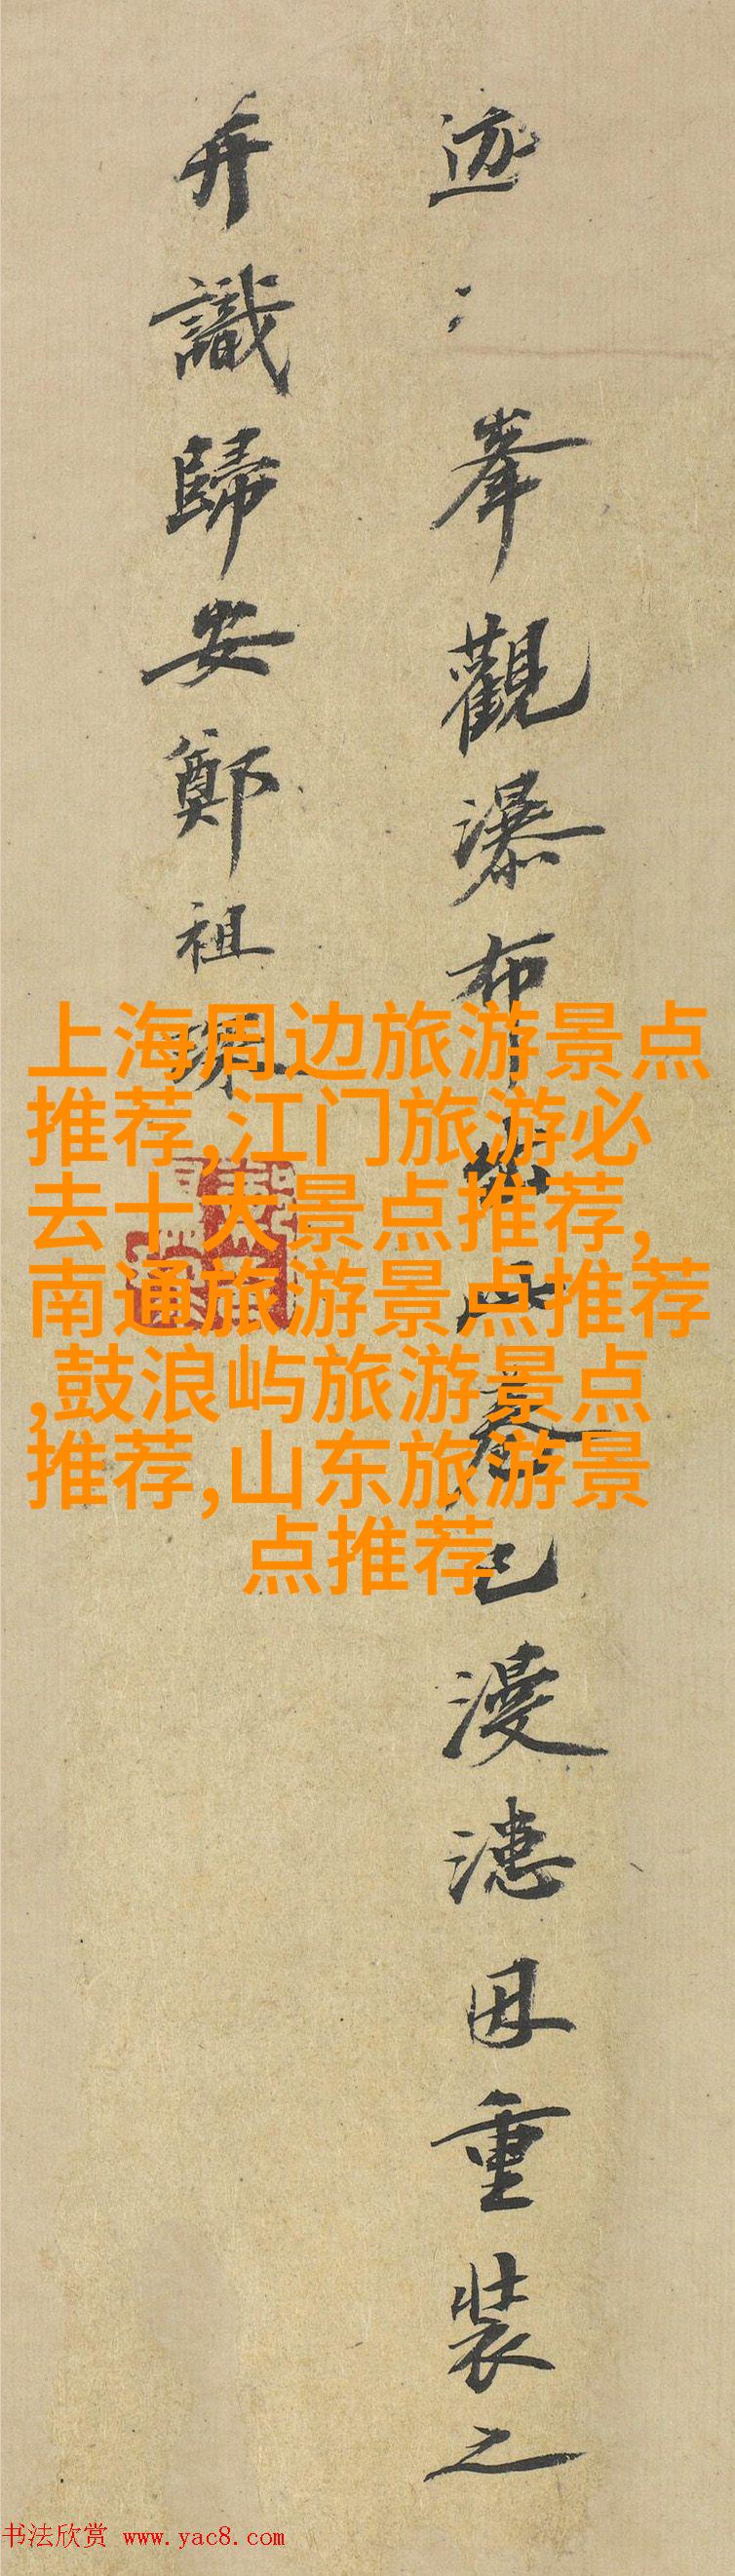 迹峯觀瀑布已漫漶因重裝之
弁識歸安鄭祖琛
上海周边旅游景点
推荐,江门旅游必
去十大景点推荐,
南通旅游景点推荐
,鼓浪屿旅游景点
推荐,山东旅游景
点推荐
书法欣赏 www.yac8.com